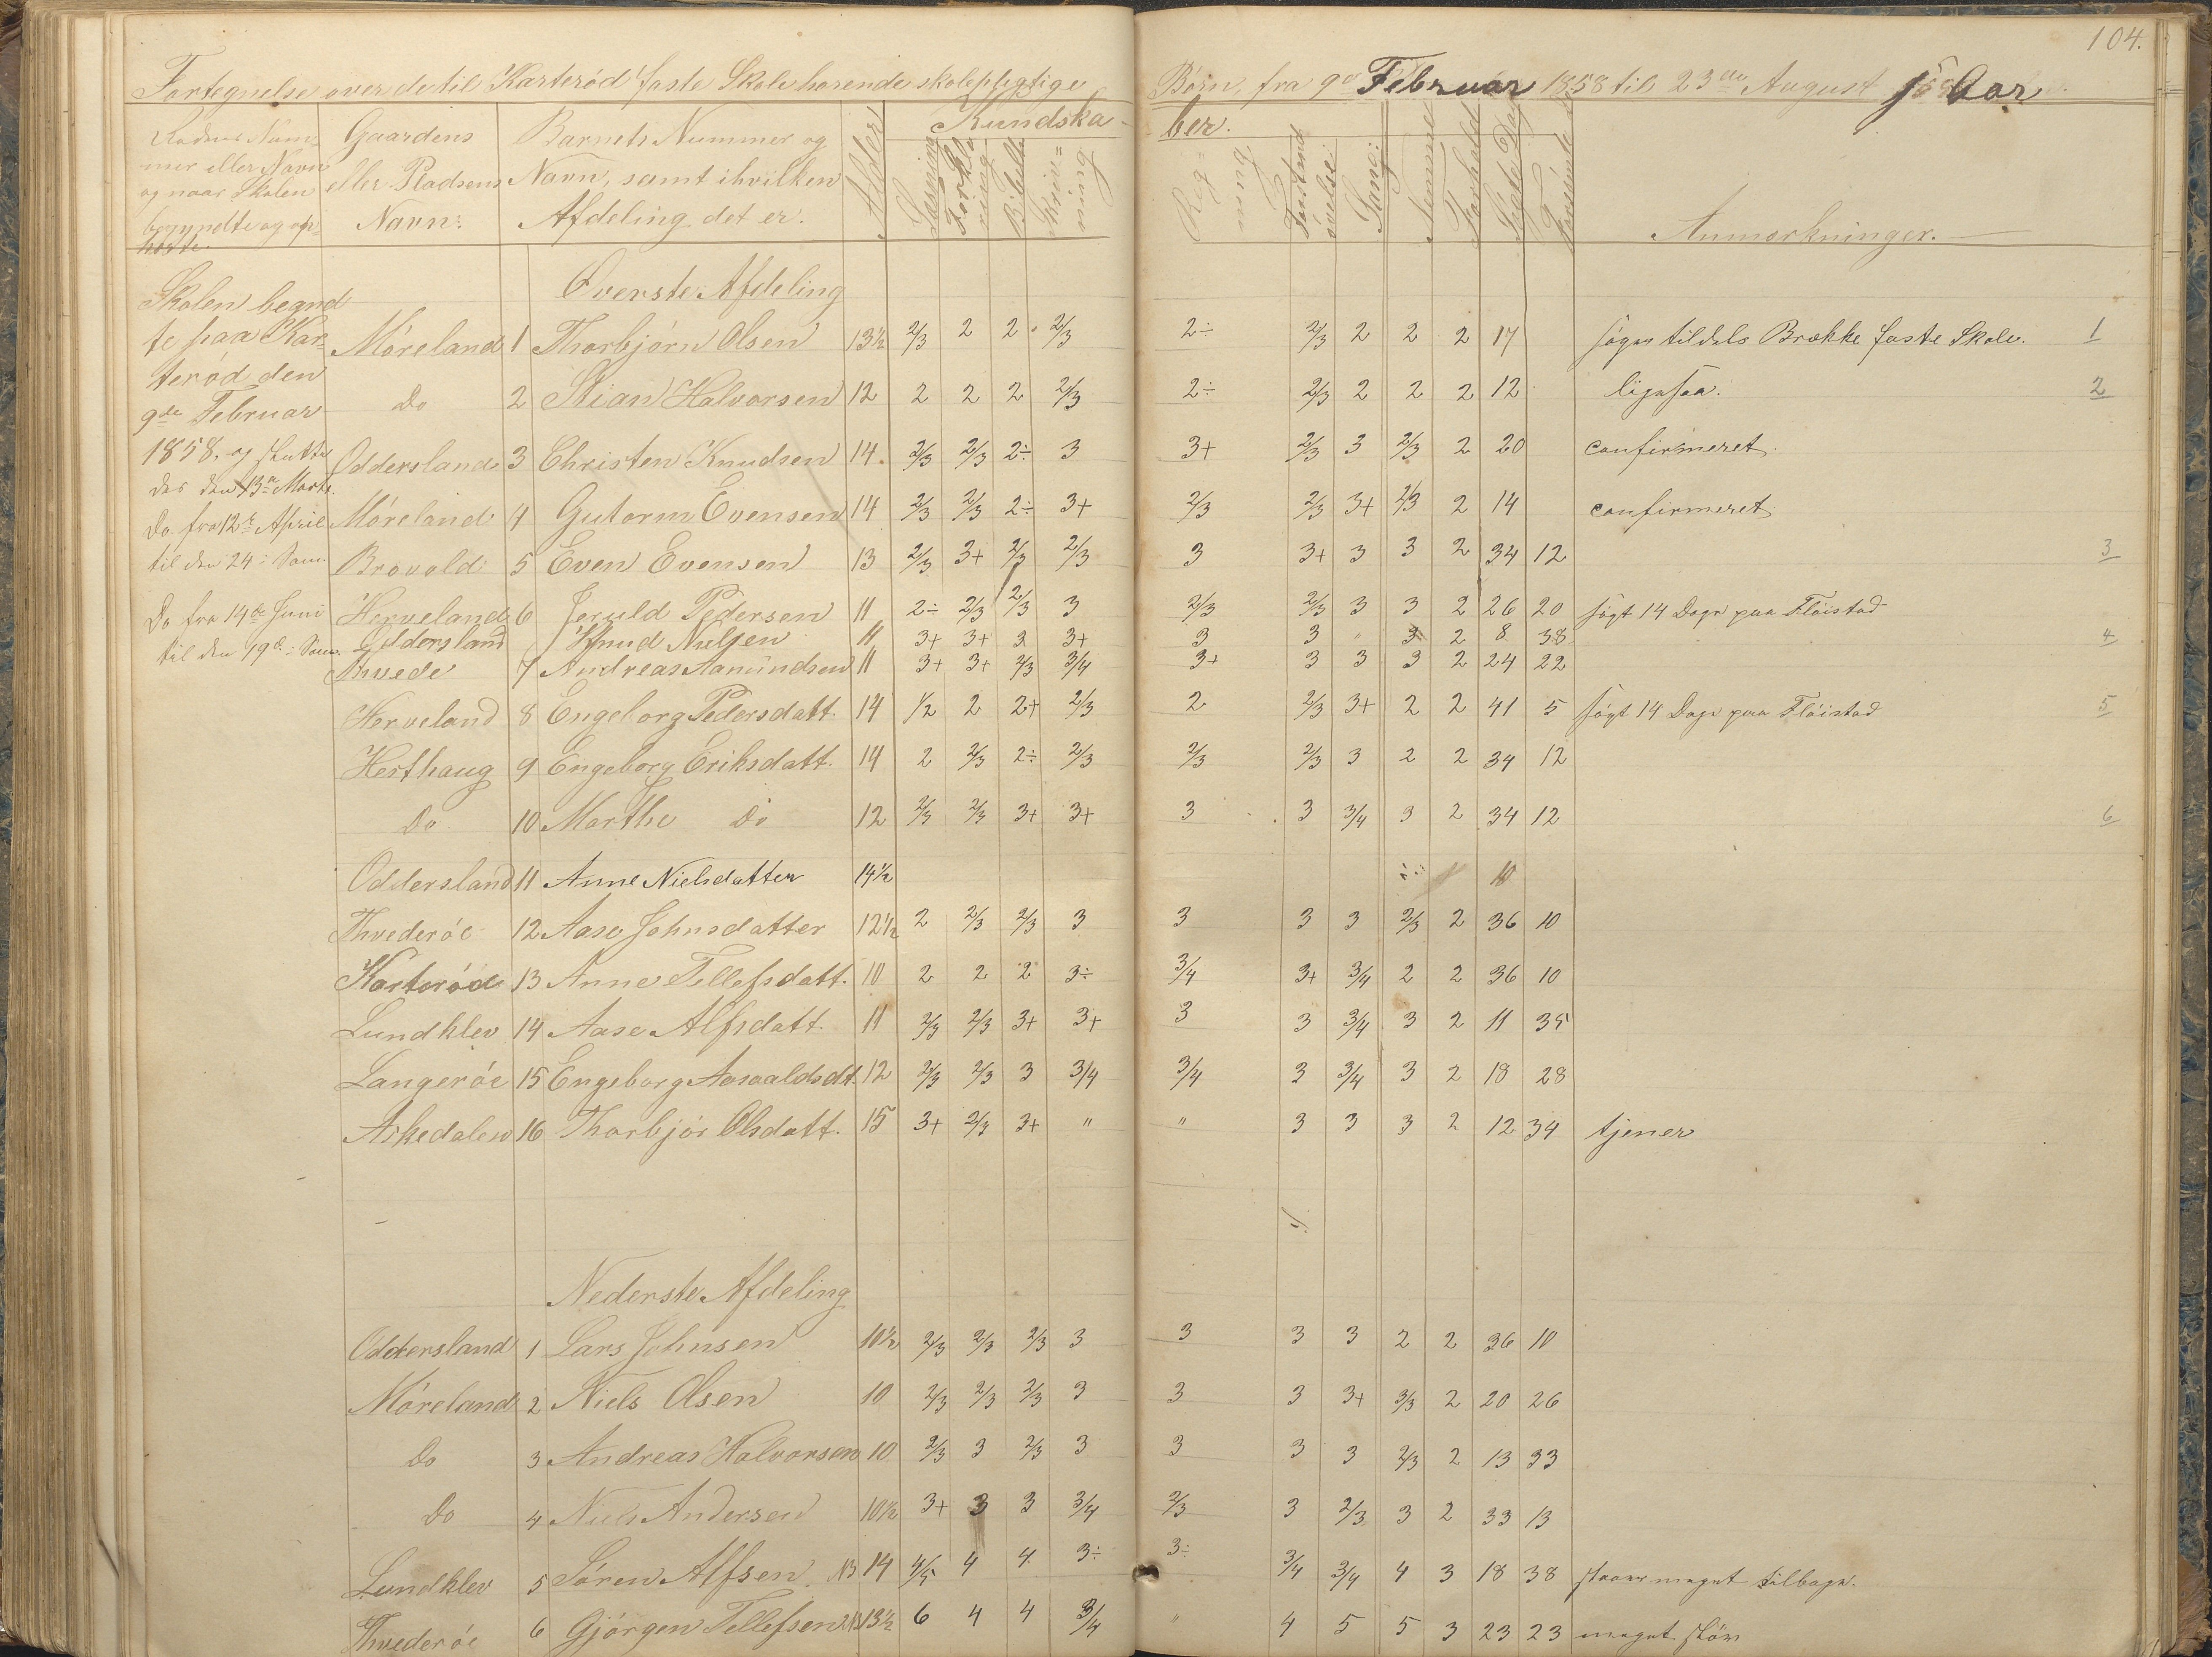 104.
Fortegnelse over de til Karteröd faste Skole hörende skolepligtige Börn, fra 9de Februar 1858 til 23de August s. Aar
Rodens Num-
mer eller Navn
og naar Skolen
begyndte og op-
hørte.
Gaardens
eller Pladsens
Navn:
Barnets Nummer og
Navn, samt i hvilken
Afdeling det er.
Alder
Kundska-
ber.
Læsning
Forkla-
ring
Bibelh
Skriv=
ning
Reg=
ning
Forstand
övelse:
Sang:
Nemme
Forhold
Sögte Dage
Forsömte
Anmærkninger.
Skolen begynd
te paa Kar-
teröd den
9de Februar
1858. og sluttet
der den 13de Marts.
Do fra 12te April
til den 24 Sam.
Do fra 14de Juni
til den 19de Sam.
Överste Afdeling
Möreland 1 Thorbjörn Olsen 13½ 2/3 2 2 2/3 2÷ 2/3 2 2 2 17 söger tildels Brække faste Skole. 1
Do 2 Stian Halvorsen 12 2 2 2 2/3 2÷ 2/3 2 2 2 12 ligesaa. 2
Oddersland 3 Christen Knudsen 14 2/3 2/3 2÷ 3 3+ 2/3 3 2/3 2 20 confirmeret
Möreland 4 Gutorm Evensen 14 2/3 2/3 2÷ 3+ 2/3 2/3 3+ 2/3 2 14 confirmeret
Brovold 5 Even Evensen 13 2/3 3+ 2/3 2/3 3 3+ 3 3 2 34 12 3
Herveland 6 Jeruld Pedersen 11 2÷ 2/3 2/3 3 2/3 2/3 3 3 2 26 20 sögt 14 Dage paa Flöistad
Oddersland Knud Nielsen 11 3+ 3+ 3 3+ 3 3 " 3 2 8 38 4
Thvede 7 Andreas Aamundsen 11 3+ 3+ 2/3 3/4 3+ 3 3 3 2 24 22
Herveland 8 Engeborg Pedersdatt. 14 1/2 2 2+ 2/3 2 2/3 3+ 2 2 41 5 sögt 14 Dage paa Flöistad 5
Hesthaug 9 Engeborg Eriksdatt. 14 2 2/3 2÷ 2/3 2/3 2/3 3 2 2 34 12
Do 10 Marthe Do 12 2/3 2/3 3+ 3+ 3 3 3/4 3 2 34 12 6
Oddersland 11 Anne Nielsdatter 14½ 10
Thvederöe 12 Aase Johnsdatter 12½ 2 2/3 2/3 3 3 3 3 2/3 2 36 10
Karteröd 13 Anne Tellefsdatt. 10 2 2 2 3÷ 3/4 3+ 3/4 2 2 36 10
Lundklev 14 Aase Alfsdatt. 11 2/3 2/3 3+ 3+ 3 3 3/4 3 2 11 35
Langeröe 15 Engeborg Aasvaldsdt. 12 2/3 2/3 3 3/4 3/4 3 3/4 3 2 18 28
Askedalen 16 Thorbjör Olsdatt. 15 3+ 2/3 3+ " " 3 3 3 2 12 34 tjener
Nederste Afdeling
Oddersland 1 Lars Johnsen 10½ 2/3 2/3 2/3 3 3 3 3 2 2 36 10
Möreland 2 Niels Olsen 10 2/3 2/3 2/3 3 3 3 3+ 2/3 2 20 26
Do 3 Andreas Halvorsen 10 2/3 3 2/3 3 3 3 3 2/3 2 13 33
Do 4 Niels Andersen 10½ 3+ 3 3 3/4 2/3 3 2/3 3 2 33 13
Lundklev 5 Sören Alfsen NB 14 4/5 4 4 3÷ 3÷ 3/4 3/4 4 3 18 38 staaer meget tilbage.
Thvederöe 6 Gjörgen Tellefsen NB 13½ 6 4 4 3/4 " 4 5 5 3 23 23 meget slöv